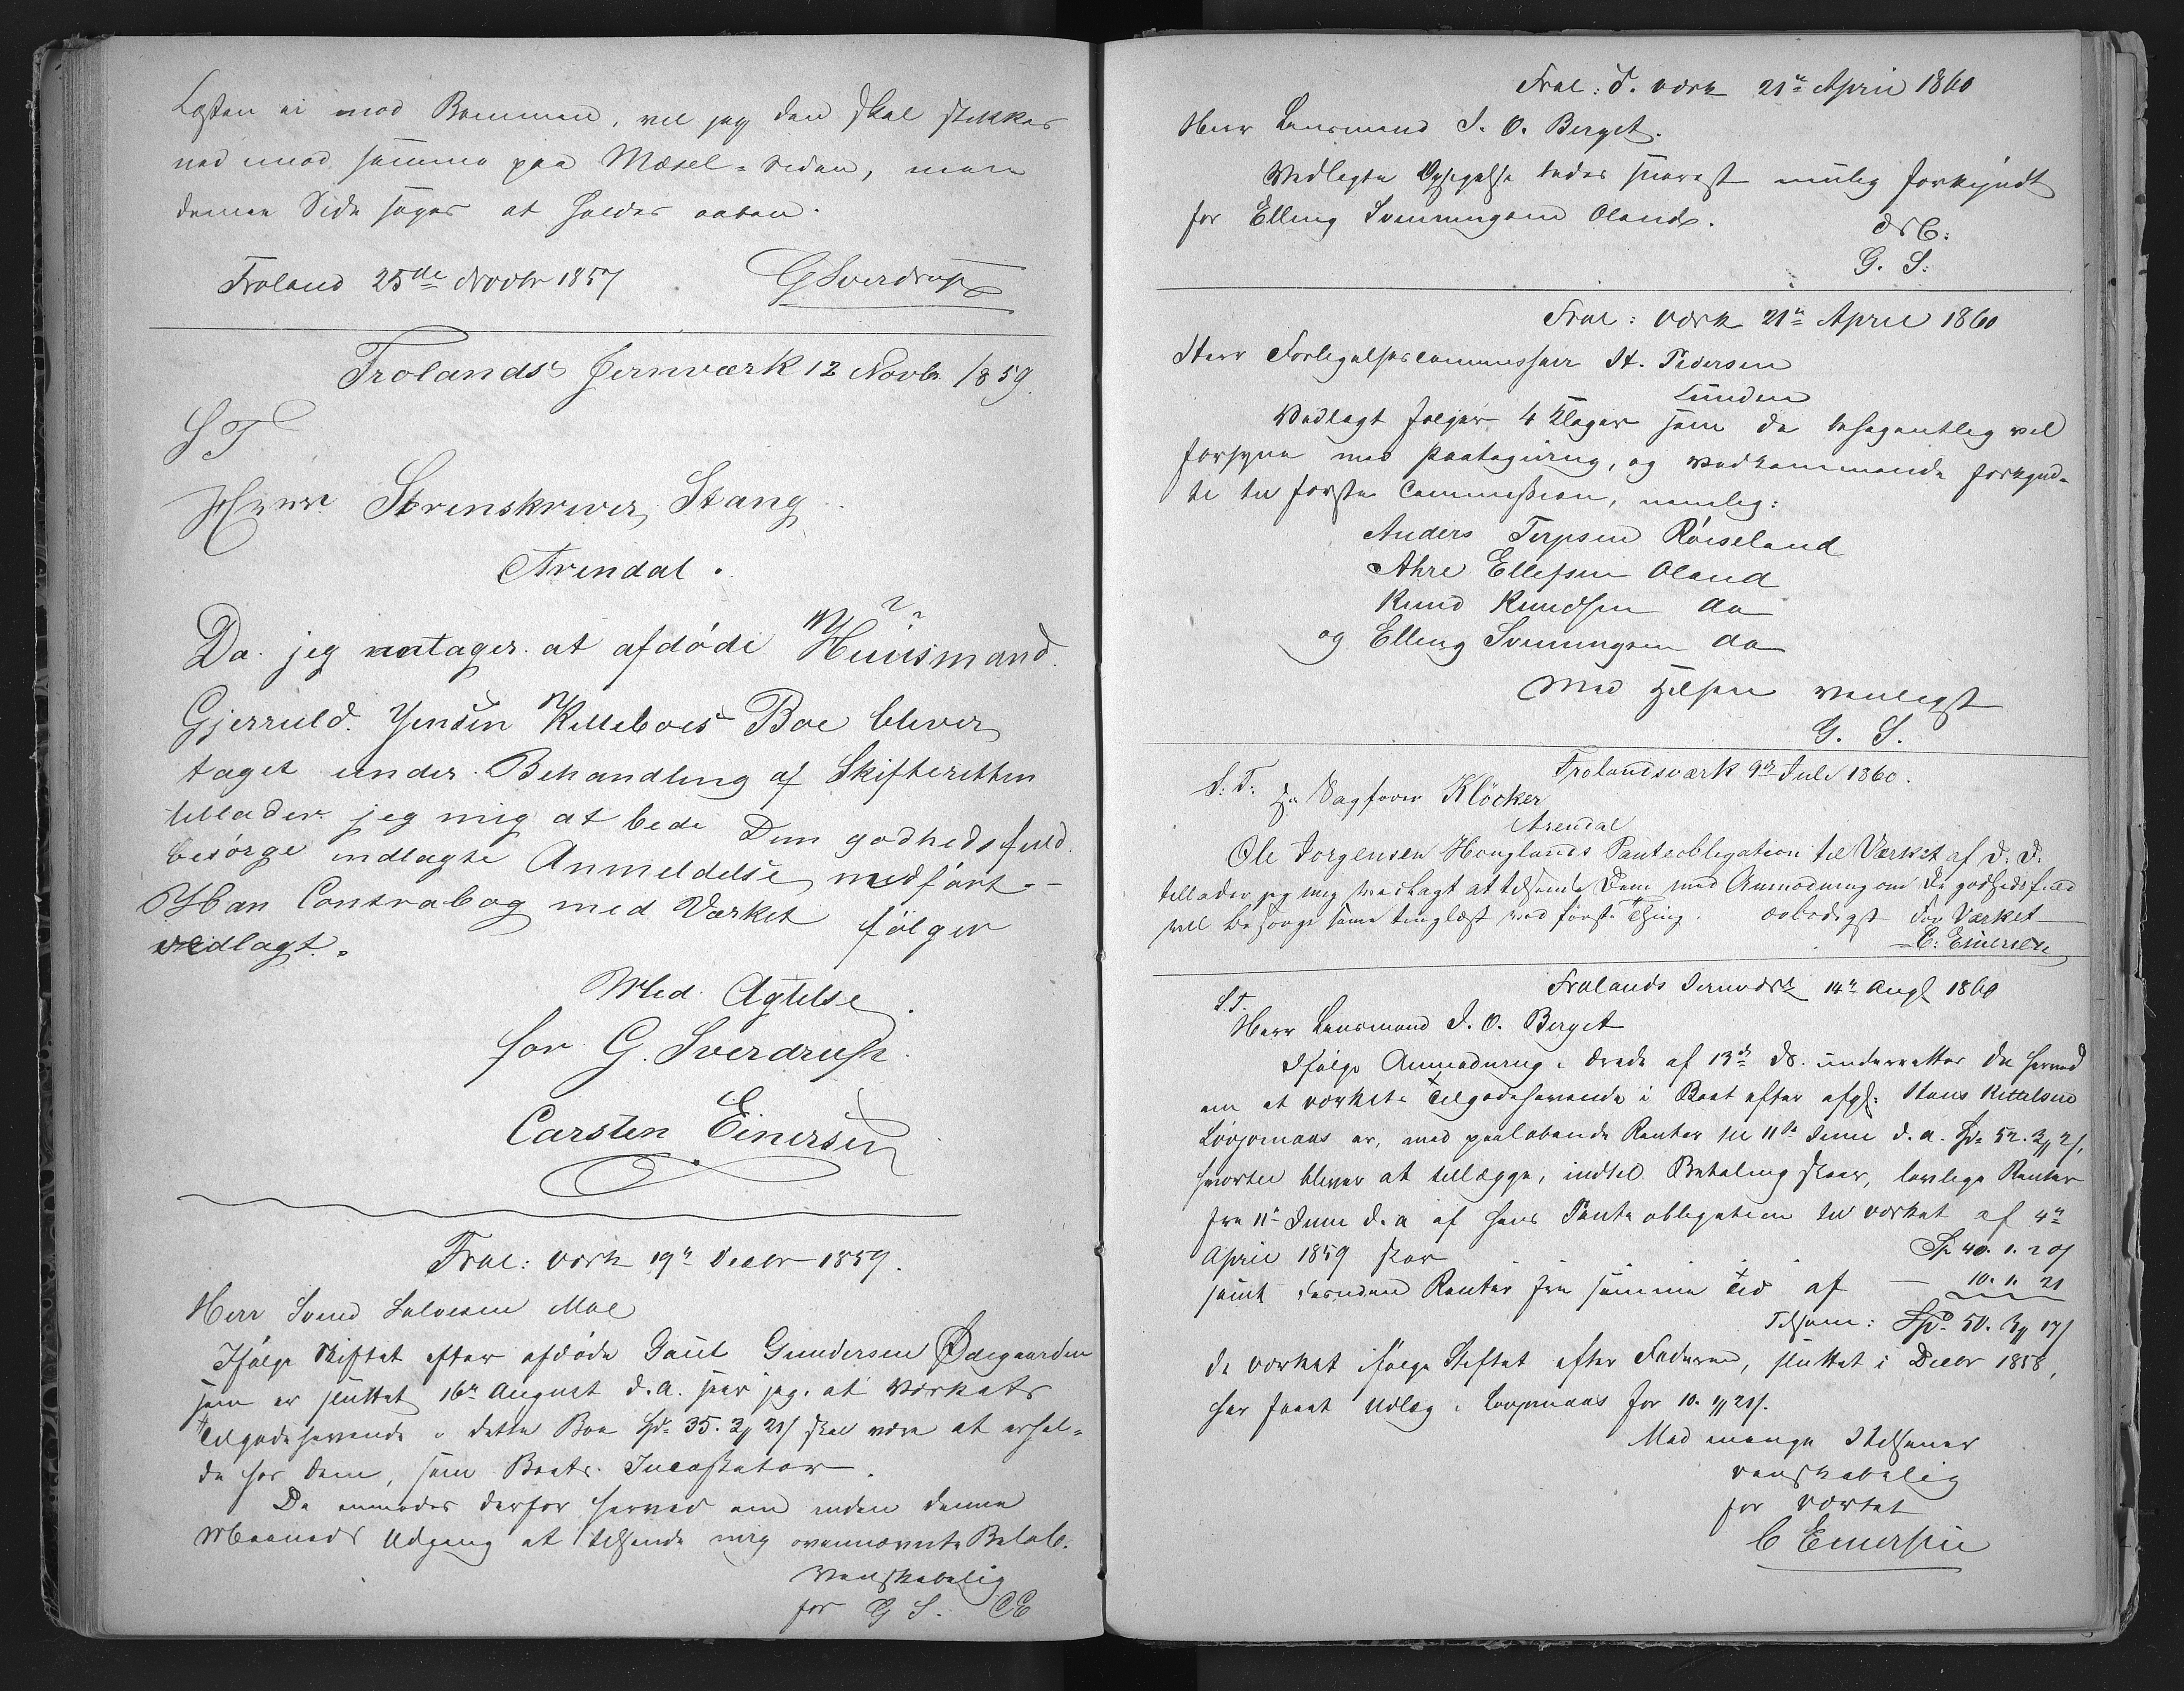 Losten ei mod Bommen, vel jeg den skal stikkes
ned imod samme paa Mæsel-siden, men
denne Side søges at holdes aaben.
Froland 25de Novbr 1857 GSverdrup
Frolands Jernværk 12 Novbr. 1859.
ST
Herr Sorenskriver Stang
Arendal.
Da jeg antager at afdöde Huusmand
Gjerruld Jensen Killeboes Boe bliver
taget under Behandling af Skifteretten
tillader jeg mig at bede Dem godhedsfuld
besörge indlagte Anmeldelse, medfört.-
Han Contrabog med Værket fölger
vedlagt.
Med Agtelse
for G. Sverdrup.
Carsten Einersen
Frol: værk 19de Decbr 1859.
Herr Svend Salvesen Moe
Ifølge Skiftet efter afdøde Gaut Gundersen Ødegaarden
som er sluttet 16de August d.A. seer jeg at Værkets
Tilgodehavende i dette Boe Spd. 35. 3 21 s skal være at erhol-
de hos Dem, som Boets Incassator.
De anmodes derfor herved om inden denne
Maaneds Udgang at tilsende mig ovennævnte Beløb.
Venskabelig
for G S. CE
Frol: J. værk 21de April 1860
Herr Lensmand J. O. Berget.
Vedlagte Opsigelse bedes snarest mulig forkyndt
for Elling Svenningsen Oland.
G. S:
Frol: værk 21de April 1860
Herr Forligelsescommissair H. Pedersen
Lunden
Vedlagt følger 4 Klager som De behagentlig vil
forsyne med Paategning, og vedkommende forkynd-
te til første Commission, nemlig:
Anders Terjesen Röiseland
Ahre Ellefsen Oland
Knud Knudsen do
og Elling Svenningsen do
Med Hilsen venligst
G. S.
Frolandsværk 9de Juli 1860.
S. T. Hr Sagfører Klöcker
Arendal
Ole Jorgensen Houglands Panteobligation til Værket af d. D.
tillader jeg mig vedlagt at tilsende Dem med Anmodning om De godhedsfuld
vil besørge samme tinglæst ved første Thing. ærbødigst For Værket
C: Einersen
Frolands Jernværk 14de Augt 1860
S.T.
Herr Lensmand J. O. Berget
Ifølge Anmodning i Brev af 13de ds. underrettes De herved
om at værkets Tilgodehavende i Boet efter afg: Hans Kittelsen
Løvjomaas er, med paaløbende Renter til 11te Juni d. a. Spd 52. 3 2 s,
hvortil bliver at tillægge, indtil Betaling skeer, lovlige Renter
fra 11te Juni d. a af hans Panteobligation til værket af 4de
April 1859 stor Sp 40. 1. 20 s
samt Renter fra samme Tid af — 10. 1. 21
Tilsam: Spd 50. 3 17 s
da værket ifølge Skiftet efter Faderen, sluttet i Decbr 1858,
har faaet Udlæg i Løvjomaas for 10. 1 21 s.
Med mange Hilsener
venskabelig
for værket
C Einersen